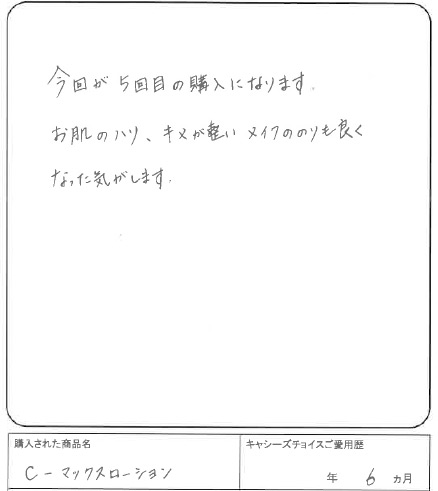 今回が5回目の購入になります。
お肌のハリ、キメが整い メイクののりも良く
なった気がします。
購入された商品名
キャシーズチョイスご愛用歴
C-マックスローション
年 6 ヵ月